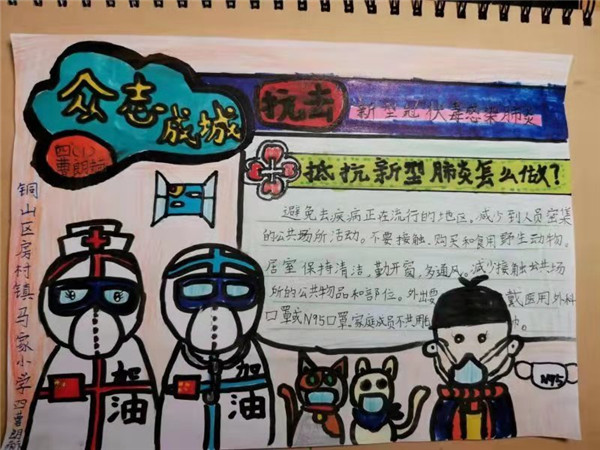 众志成城
抗击
新型冠状毒感染肺炎
四(1)
曹朗
抵抗新型肺炎怎么做?
避免去疾病正在流行的地区,减少到人员密集
的公共场所活动。不要接触、购买和食用野生动物。
居室保持清洁,勤开窗,多通风。减少接触公共场
所的公共物品和部位。外出要
戴医用外科
口罩或N95口罩。家庭成员不共用
巾。
铜山区房村镇马家小学四曹朗
加油
加油
N95